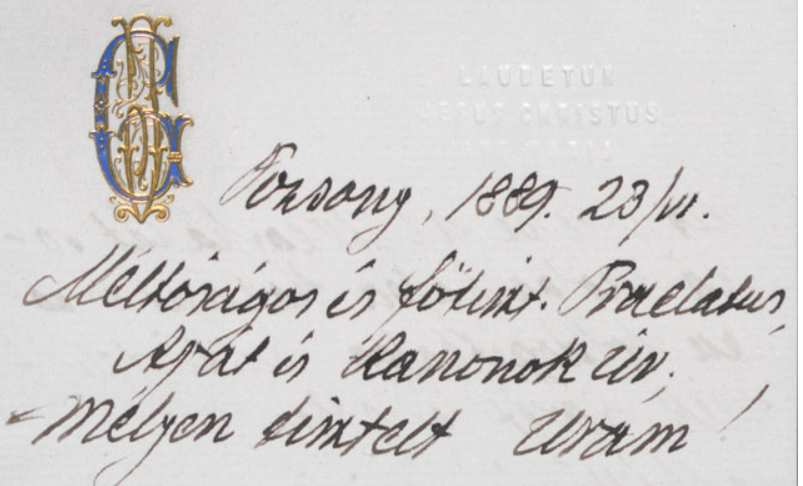 LAUDETUR
JESUS CHRISTUS
Pozsony, 1889. 23/VI.
Méltóságos és főtiszt. Praelatus,
Apát és Kanonok Úr,
Mélyen tisztelt Uram!